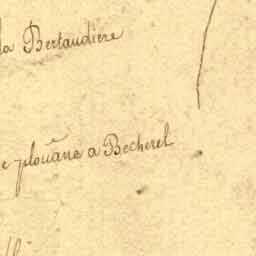 la Bertaudiere
e plouãne a Becherel